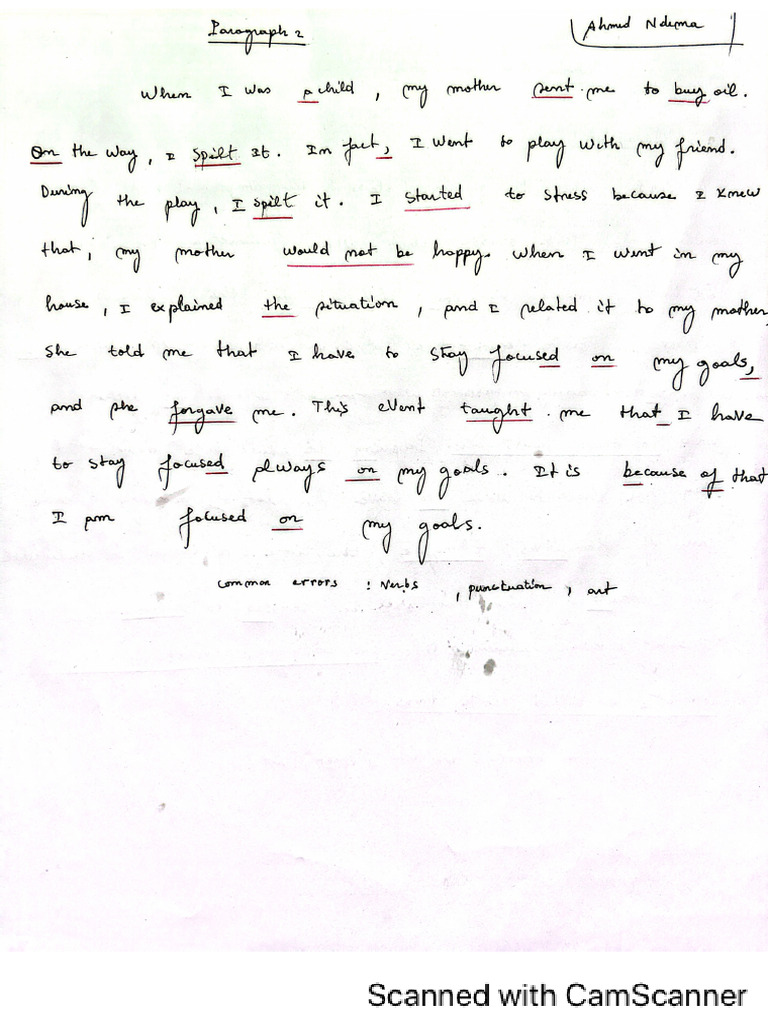 Paragraph 2
Ahmed Ndema
When I was a child, my mother sent me to buy oil.
On the way, I spilt It. In fact, I went to play with my friend.
During the play, I spilt it. I started to stress because I knew
that, my mother would not be happy. When I went in my
house, I explained the situation, and I related it to my mother
She told me that I have to stay focused on my goals,
and she forgave me. This event taught me that I have
to stay focused always on my goals. It is because of that
I am focused on my goals.
common errors : Verbs , punctuation , art
Scanned with CamScanner